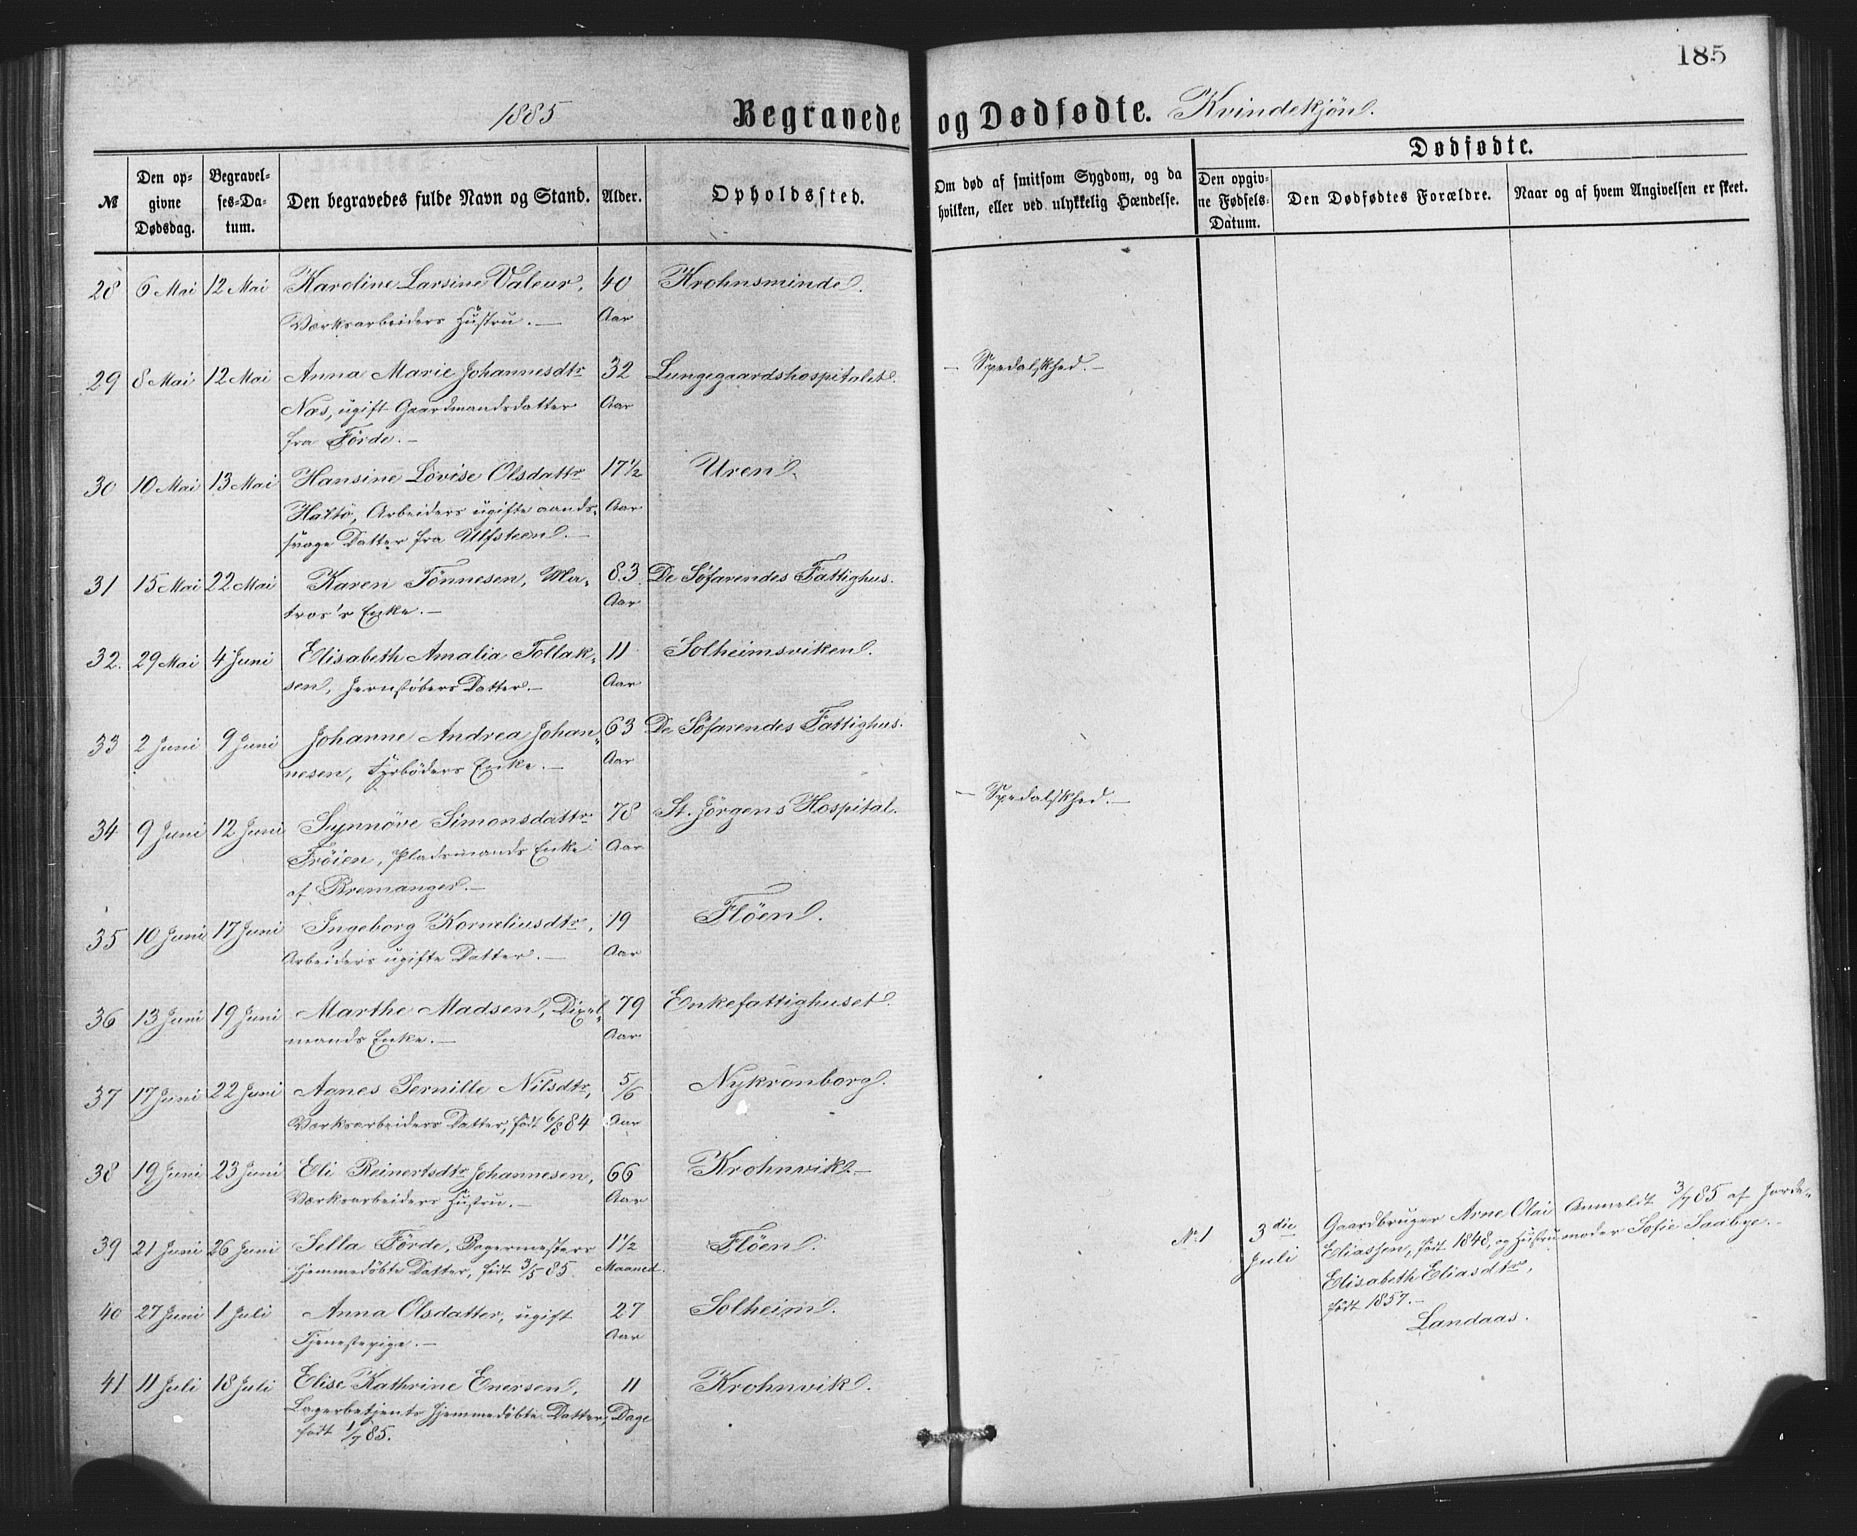 185
1885 Begravede og Dødfødte. Kvindekjøn.
№ Den opgivne Dødsdag. Begravelses-Datum. Den begravedes fulde Navn og Stand. Alder. Opholdssted. Om død af smitsom Sygdom, og da hvilken, eller ved ulykkelig Hændelse. Dødfødte. Den opgivne Fødsels-Datum. Den Dødfødtes Forældre. Naar og af hvem Angivelsen er skeet.
28 6 Mai 12 Mai Karoline Larsine Valeur, 40 Krohnsminde.
Værksarbeiders Hustru.— Aar
29 8 Mai 12 Mai Anna Marie Johannesdtr 32 Lungegaardshospitalet. — Spedalskhed.—
Næs, ugift Gaardmandsdatter Aar
fra Förde.—
30 10 Mai 13 Mai Hansine Lovise Olsdattr 17½ Uren.
Hartö, Arbeiders ugifte aands- Aar
svage Datter fra Ulfsteen.—
31 15 Mai 22 Mai Karen Tönnesen, Ma- 83 De Söfarendes Fattighus.
tros's Enke.— Aar
32. 29 Mai 4 Juni Elisabeth Amalia Tollak- 11 Solheimsviken.
sen, Jernstøbers Datter.— Aar
33 2 Juni 9 Juni Johanne Andrea Johan- 63 De Söfarendes Fattighus.
nesen, Fyrböders Enke.— Aar
34 9 Juni 12 Juni Synnöve Simonsdattr 78 St. Jörgens Hospital. — Spedalskhed.—
Fröien, Pladsmands Enke Aar
af Bremanger.—
35 10 Juni 17 Juni Ingeborg Korneliusdtr, 19 Flöen.
Arbeiders ugifte Datter.— Aar
36 13 Juni 19 Juni Marthe Madsen, Dixel- 79 Enkefattighuset.
mands Enke.— Aar
37 17 Juni 22 Juni Agnes Pernille Nilsdtr, 5/6 Nykronborg.
Værksarbeiders Datter, født 6/8 84 Aar
38 19 Juni 23 Juni Eli Reinertsdtr Johannesen, 66 Krohnvik—
Værksarbeiders Hustru.— Aar
39 21 Juni 26 Juni Sella Förde, Bagermesters 1½ Flöen.
hjemmedøbte Datter, født 3/5 85. Maaned.
40 27 Juni 1 Juli Anna Olsdatter, ugift 27 Solheim.
Tjenestepige.— Aar
41 11 Juli 18 Juli Elise Kathrine Enersen, 11 Krohnvik.
Lagerbetjents hjemmedøbte Datter, Dage
født 1/7 85.
No 1 3die Juli
Gaardbruger Arne Olai
Eliassen, født 1848, og Hustru
Elisabeth Eliasdtr,
født 1857.—
Landaas.
Anmeldt 3/7 85 af Jorde-
moder Sofie Saabye.—